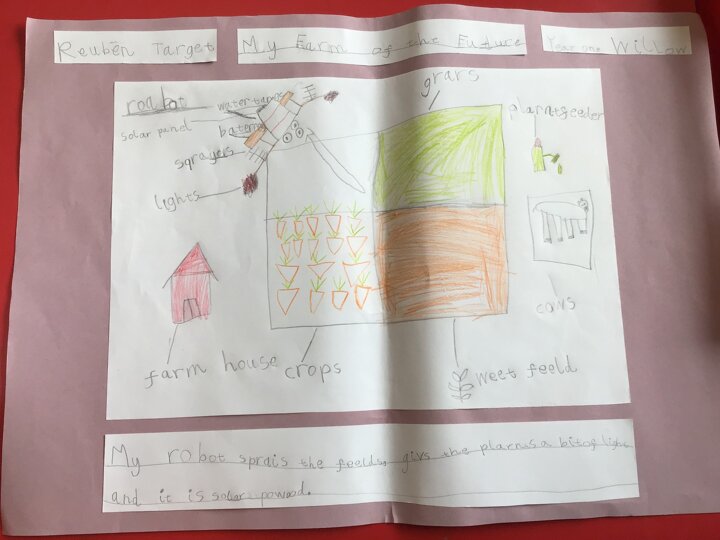 Reuben Target
My Farm of the Future
Year one Willow
roabot
grars
water tanps
solar panel
batery
sqrayers
lights
plarntfeeder
cows
farm house
crops
weet feeld
My robot sprais the feelds, givs the plarns a bit of light
and it is solar powood.